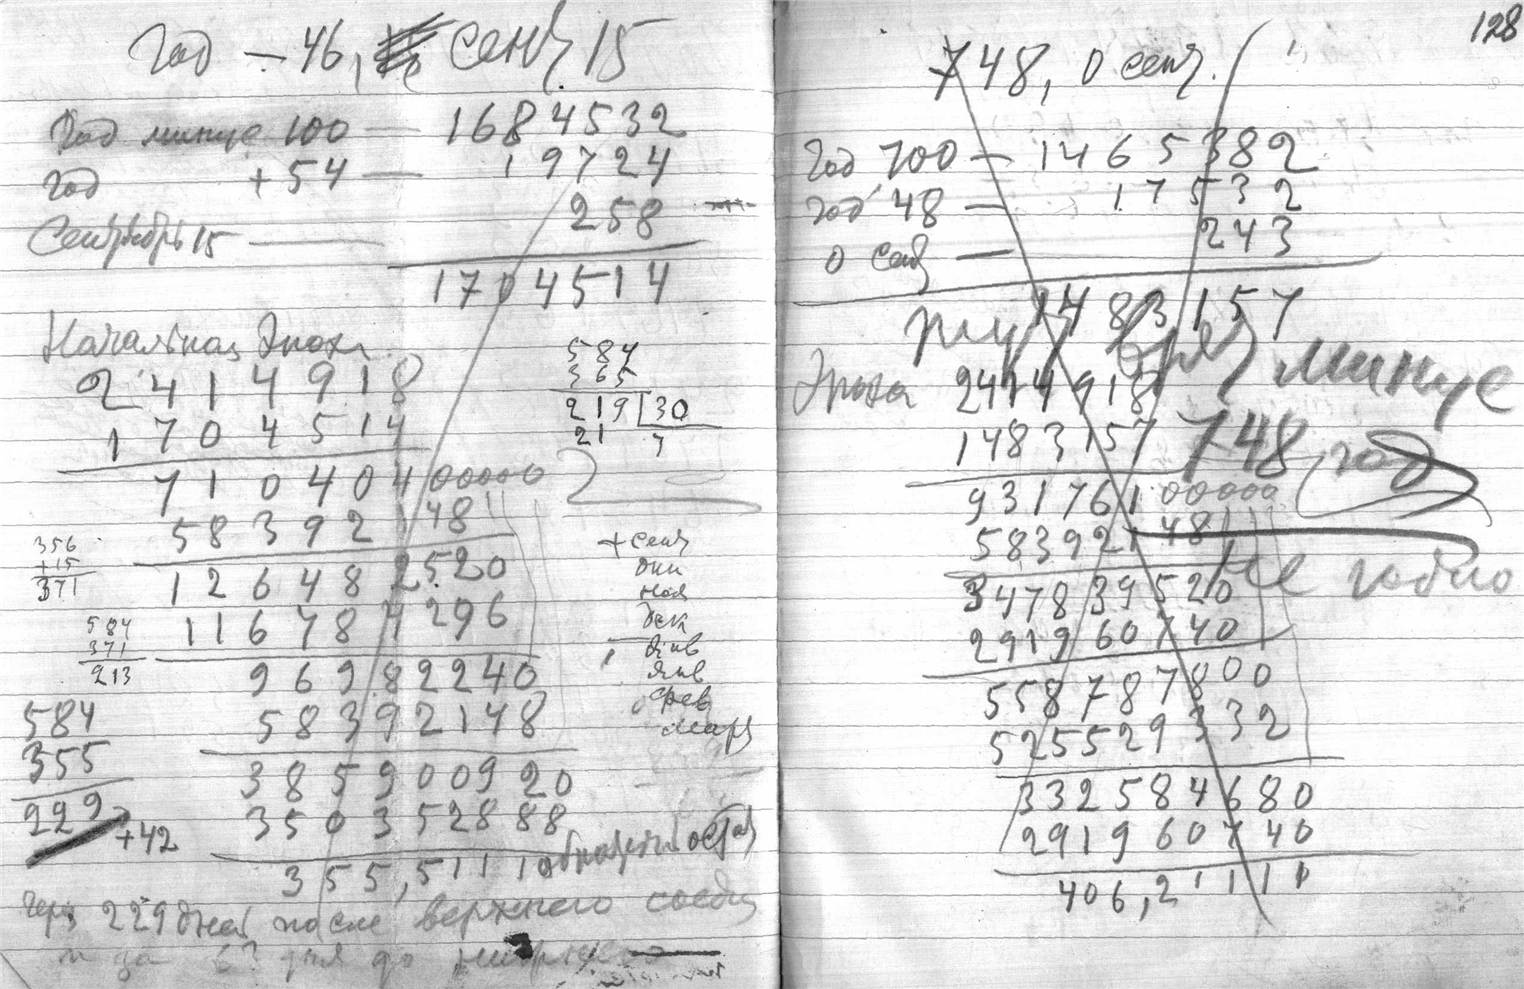 Год — 46, сент 15
Год минус 100 — 1684532
год +54 — 19724
Сентябрь 15 — 258
1704514
Начальная Эпоха
2414918
1704514
71040400000
58392148
126482520
116784296
96982240
58392148
385900920
350352888
355,5111
обратн остат
584
365
219 | 30
21 7
356
+15
371
584
371
213
584
355
229
+42
+ сент
окт
ноя
дек
янв
янв
фев
март
через 229 дней после верхнего соед
и за 63 дня до нижнего
128
748, 0 сент.
Год 700 — 1465382
год 48 — 17532
0 сент — 243
1483157
минус
748 год
не годно
Эпоха 2414918
1483157
93176100000
58392148
347839520
291960740
558787800
525529332
332584680
291960740
406,21111